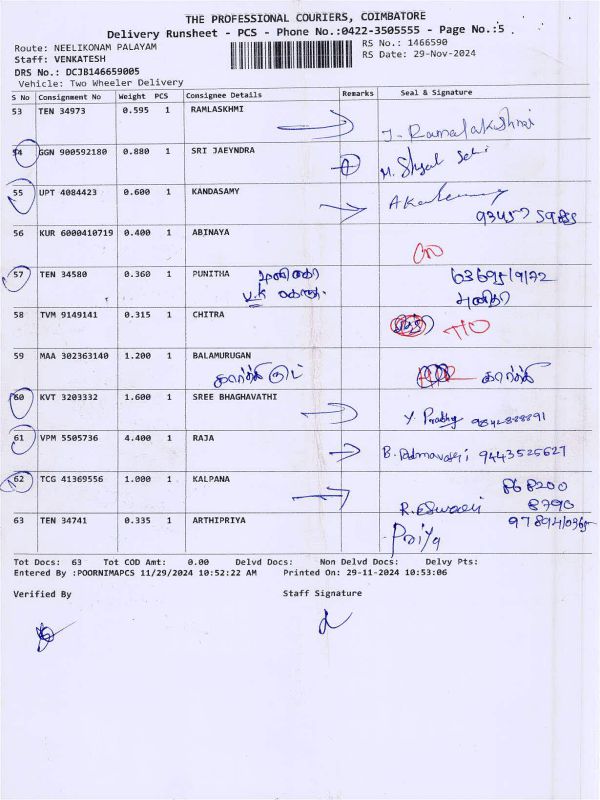 THE PROFESSIONAL COURIERS, COIMBATORE
Delivery Runsheet - PCS - Phone No.:0422-3505555 - Page No.:5
Route: NEELIKONAM PALAYAM RS No.: 1466590
Staff: VENKATESH RS Date: 29-Nov-2024
DRS No.: DCJB146659005
Vehicle: Two Wheeler Delivery
S No Consignment No Weight PCS Consignee Details Remarks Seal & Signature
53 TEN 34973 0.595 1 RAMLASKHMI
54 GGN 900592180 0.880 1 SRI JAEYNDRA
55 UPT 4084423 0.600 1 KANDASAMY
56 KUR 6000410719 0.400 1 ABINAYA
57 TEN 34580 0.360 1 PUNITHA
58 TVM 9149141 0.315 1 CHITRA
59 MAA 302363140 1.200 1 BALAMURUGAN
60 KVT 3203332 1.600 1 SREE BHAGHAVATHI
61 VPM 5505736 4.400 1 RAJA B. Padmavathi 9443525627
62 TCG 41369556 1.000 1 KALPANA R. ESwari 868200
8790
63 TEN 34741 0.335 1 ARTHIPRIYA Priya
Tot Docs: 63 Tot COD Amt: 0.00 Delvd Docs: Non Delvd Docs: Delvy Pts:
Entered By :POORNIMAPCS 11/29/2024 10:52:22 AM Printed On: 29-11-2024 10:53:06
Verified By Staff Signature